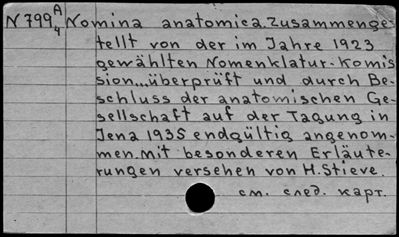 N 799 A/4 Nomina anatomica. Zusammenge-
stellt von der im Jahre 1923
gewählten Nomenklatur-Komis
sion...überprüft und durch Be-
schluss der anatomischen Ge-
sellschaft auf der Tagung in
Jena 1935 endgültig angenom-
men. Mit besonderen Erläute-
rungen versehen von H. Stieve.
см. след. карт.